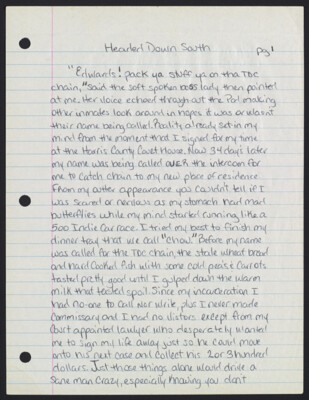 Headed Down South
pg 1
"Edwards! Pack ya stuff ya on tha TDC
chain," Said the soft spoken boss lady then pointed
at me. Her Voice echoed throughout the Pod making
other inmates look around in hopes it was or wasnt
their name being called. Reality already set in my
mind from the moment that I signed for my time
at the Harris County Court House. Now 34 days later
my name was being called OVER the intercom for
me to catch chain to my new place of residence
From my outter appearance you couldn't tell if I
was scared or nervous as my stomach had mad
butterflies while my mind started running like a
500 Indie Car race. I tried my best to finish my
dinner tray that we call "Chow." Before my name
was called for the TDC chain, the stale wheat bread
and hard cooked fish with some cold peas & carrots
tasted pretty good until I gulped down the warm
milk that tasted spoil. Since my incarceration I
had no-one to call nor write, plus I never made
Commissary and I had no visitors except from my
Court appointed lawyer who desperately wanted
me to sign my life away just so he could move
onto his next case and collect his 2 or 3 hundred
dollars. Just those things alone would drive a
Sane man crazy, especially knowing you don't